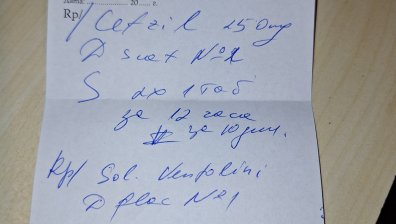 Дата: ............ 20...... г.
Rp/ Cefzil 250 mg
D scat №2
S 2x1 таб
за 12 часа
за 10 дни.
Rp/ Sol. Ventolini
D flac №1